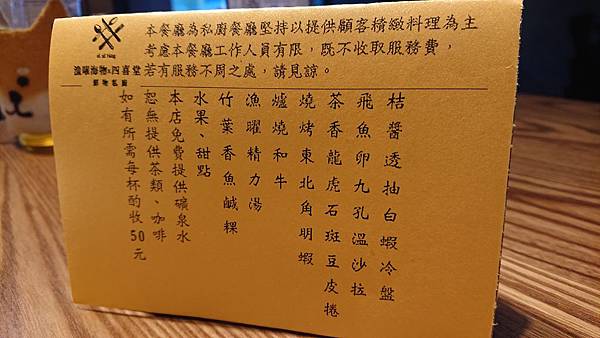 本餐廳為私廚餐廳堅持以提供顧客精緻料理為主
考慮本餐廳工作人員有限，既不收取服務費，
若有服務不周之處，請見諒。
漁曜海物x四喜堂
桔醬透抽白蝦冷盤
飛魚卵九孔溫沙拉
茶香龍虎石斑豆皮捲
燒烤東北角明蝦
爐燒和牛
漁曜精力湯
竹葉香魚鹹粿
水果、甜點
本店免費提供礦泉水
恕無提供茶類、咖啡
如有所需每杯酌收50元